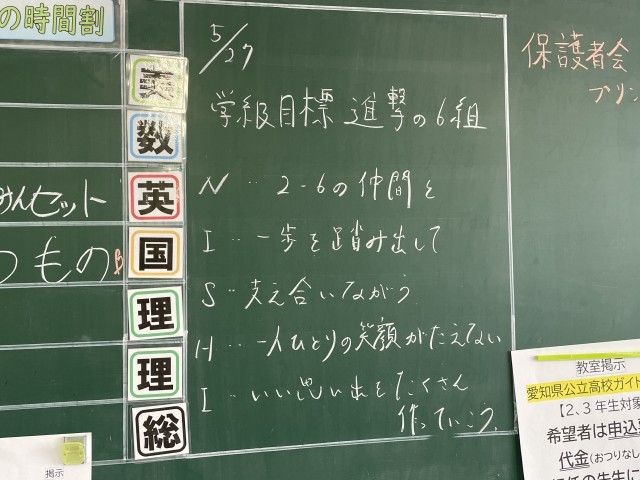 の時間割
数
英
国
理
理
総
セット
つもの
5/27
学級目標 進撃の6組
N … 2-6の仲間と
I … 一歩を踏み出して
S … 支え合いながら
H … 一人ひとりの笑顔がたえない
I … いい思い出をたくさん
作っていこう。
保護者会
プリン
教室掲示
愛知県公立高校ガイド
【2、3年生対象
希望者は申込
代金(おつりなし
担任の先生に
掲示